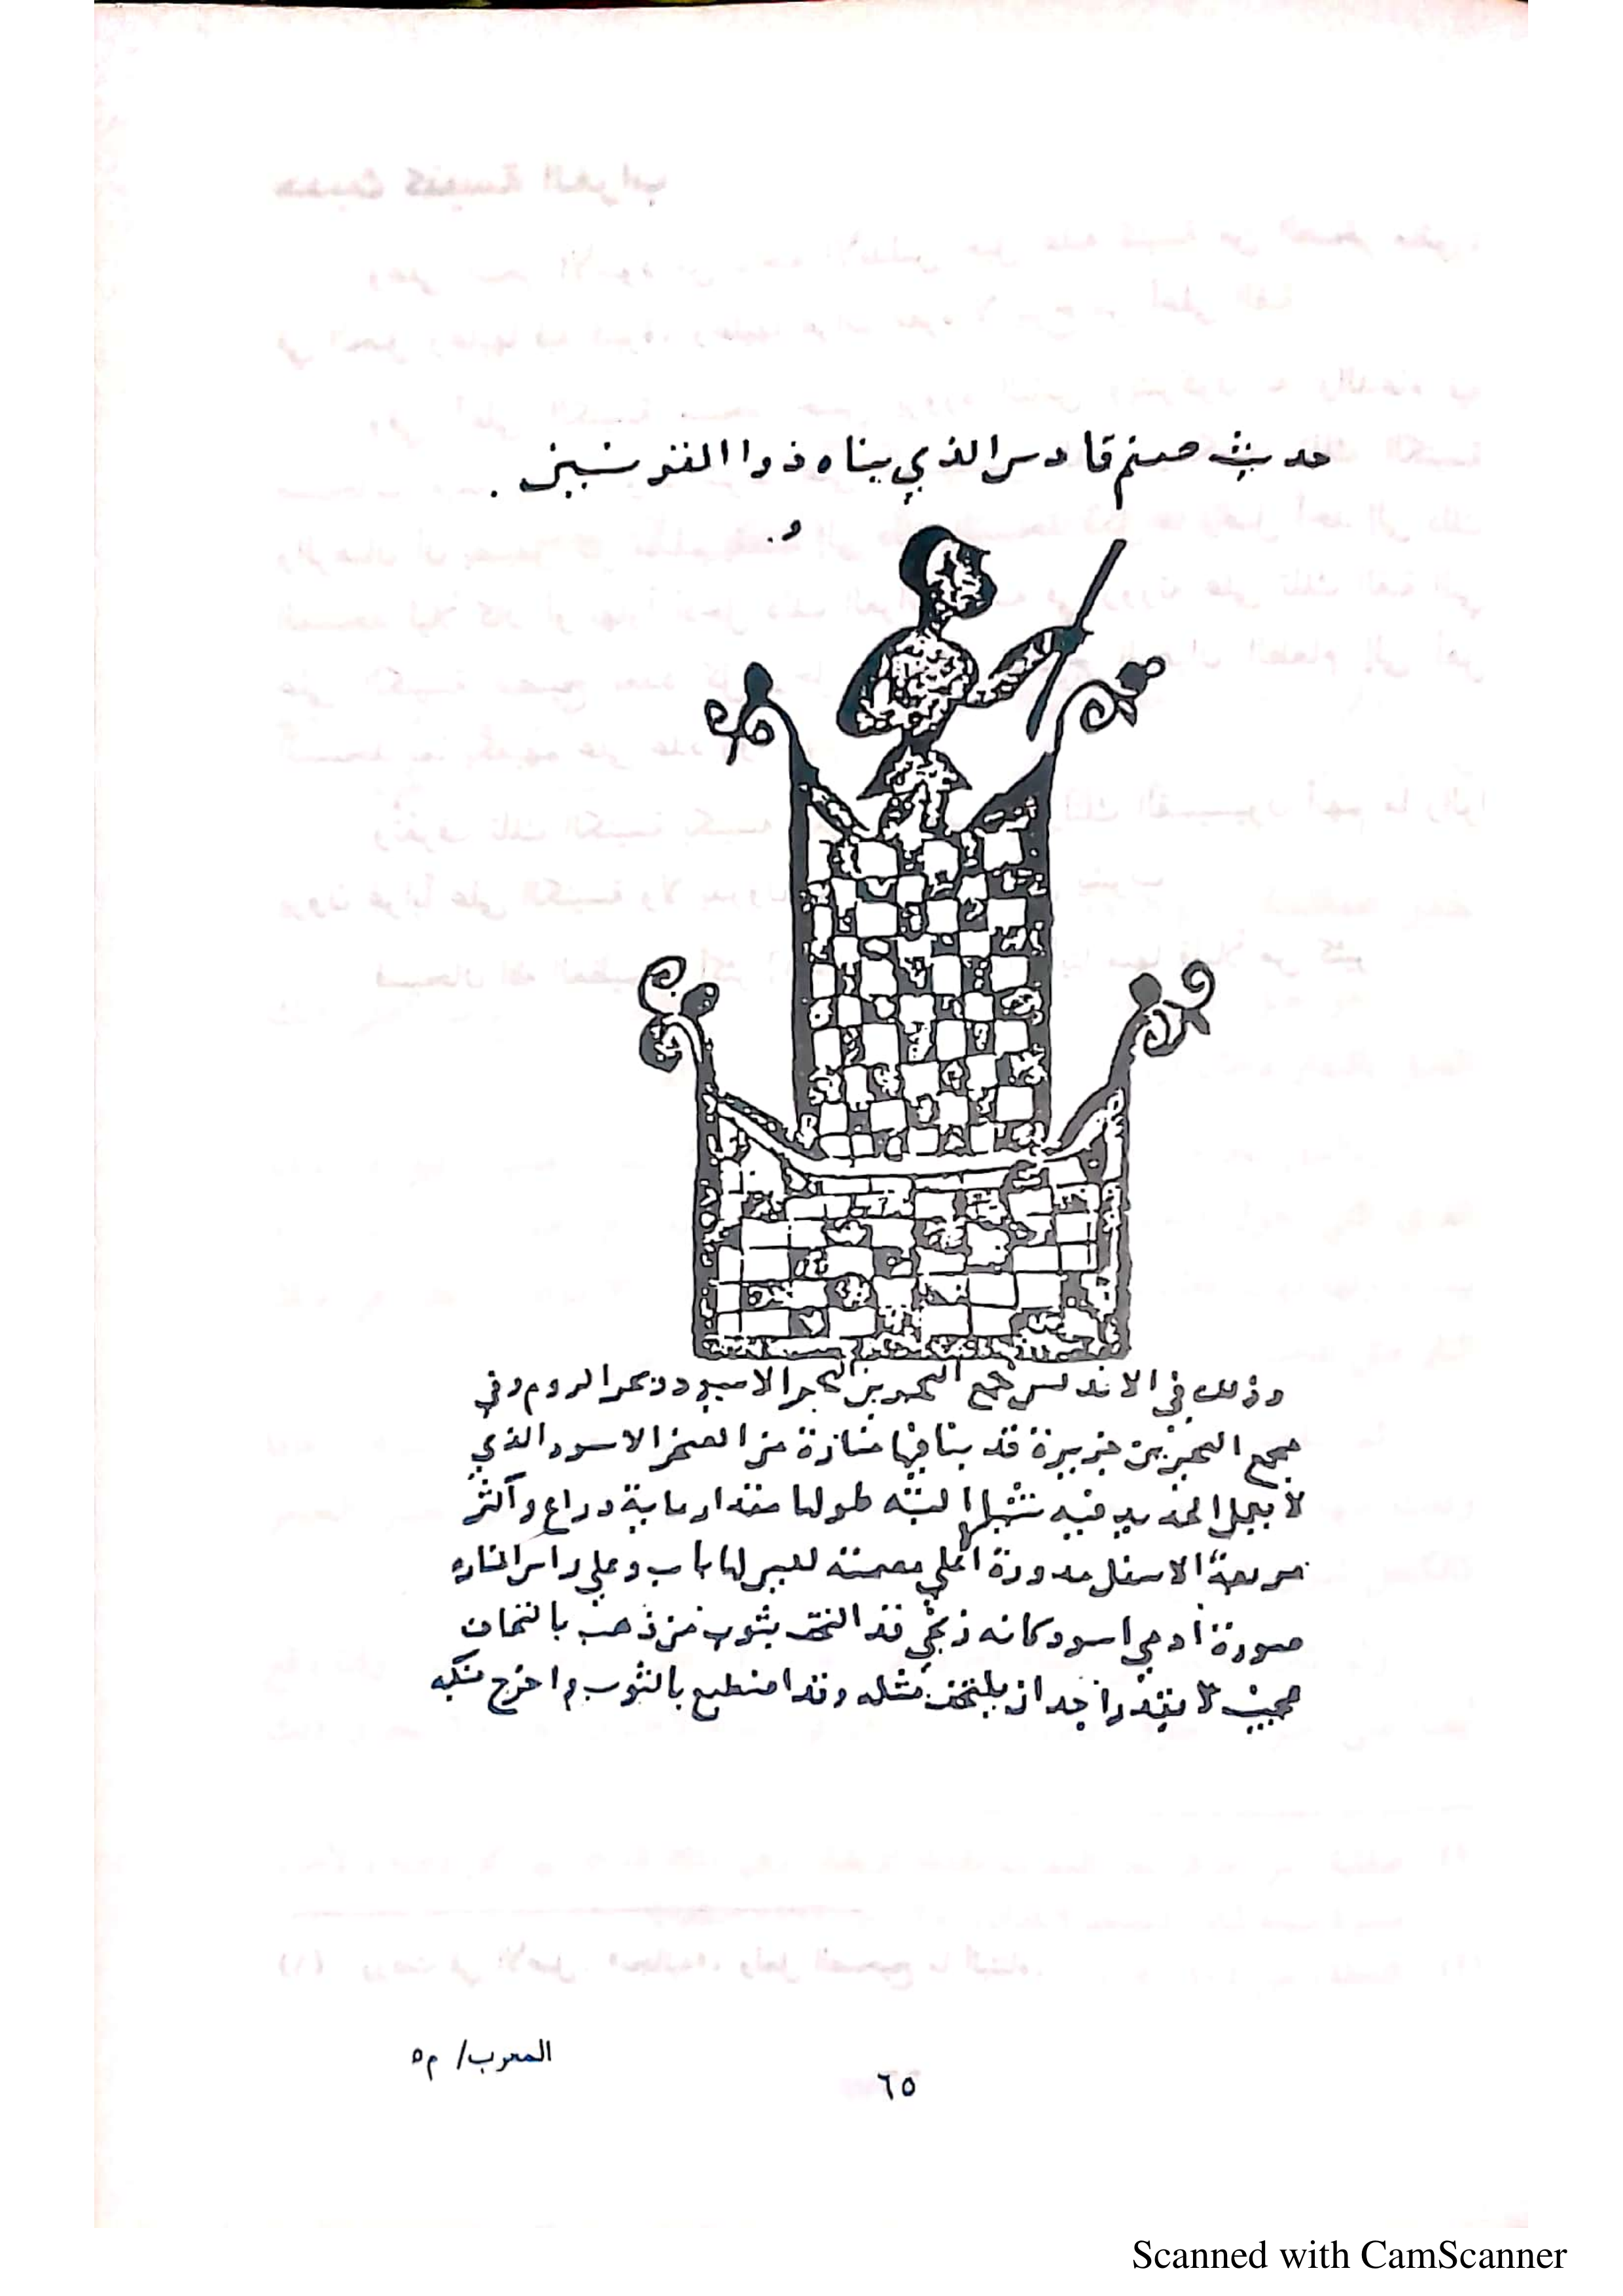 حديث صنم قادس الذي بناه ذوا القرنين .
وذلك في الاندلس مجمع البحرين البحر الاسود وبحر الروم وفي
مجمع البحرين جزيرة قد بنا فيها منارة من الصخر الاسود الذي
لا يعمل الحديد فيه البته طولها مقدار ماية دراع وأكثر
مربعة الاسفل مدورة اعلي مصمته ليس لها باب وعلي راس المناره
صورة ادمي اسود كانه زنجي قد التحف بثوب من ذهب بالتحاف
عجيب لا يقدر احد ان يلتحف مثله وقد اضطبع بالثوب واخرج منكبه
المعرب/ م٥
٦٥
Scanned with CamScanner